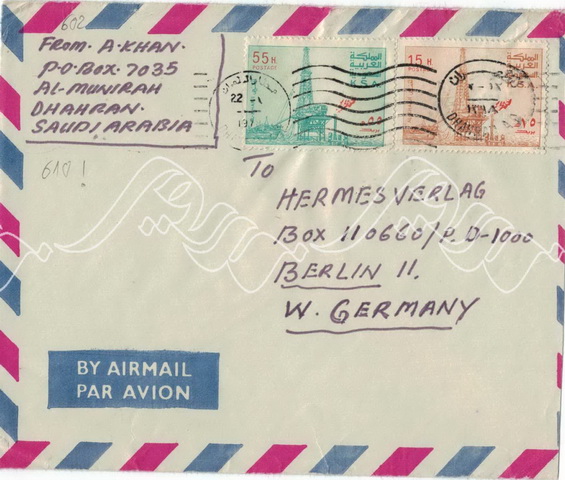 602
FROM. A. KHAN.
P.O. BOX. 7035
AL-MUNIRAH
DHAHRAN.
SAUDI ARABIA
55 H
POSTAGE
المملكة
العربية
السعودية
K.S.A.
٥٥
15 H
POSTAGE
المملكة
العربية
السعودية
K.S.A.
١٥
22
197
6101
TO
HERMESVERLAG
BOX 110660/P. D-1000
BERLIN 11.
W. GERMANY
BY AIRMAIL
PAR AVION